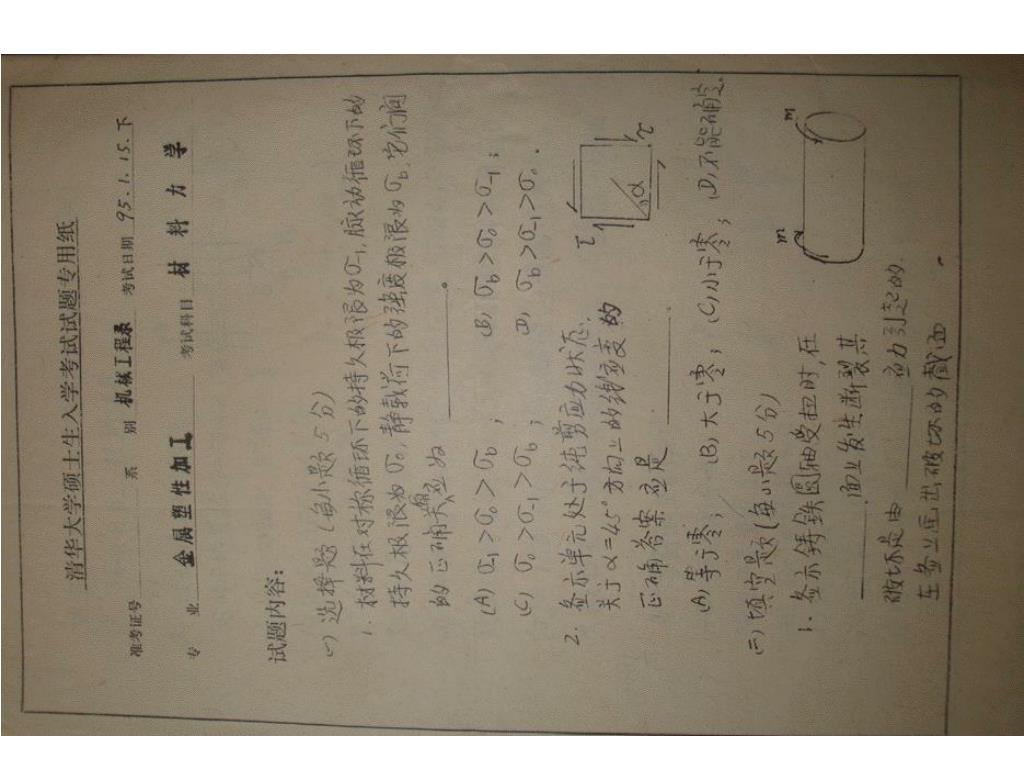 清华大学硕士生入学考试试题专用纸
准考证号 系 别 机械工程系 考试日期 95.1.15.下
专 业 金属塑性加工 考试科目 材 料 力 学
试题内容：
(一) 选择题 (每小题5分)
1. 材料在对称循环下的持久极限为σ-1, 脉动循环下的
持久极限为σ0, 静载荷下的强度极限为σb, 它们间
的正确关系应为 。
(A) σ-1>σ0>σb ; (B) σb>σ0>σ-1 ;
(C) σ0>σ-1>σb ; (D) σb>σ-1>σ0.
2. 图示单元处于纯剪应力状态.
关于α=45°方向上的线应变的
正确答案应是
(A) 等于零; (B) 大于零; (C) 小于零; (D) 不能确定.
τ
α
τ
(二) 填空题 (每小题5分)
1. 图示铸铁圆轴受扭时, 在
面上发生断裂, 其
破坏是由 应力引起的.
在图上画出破坏的截面.
m
m